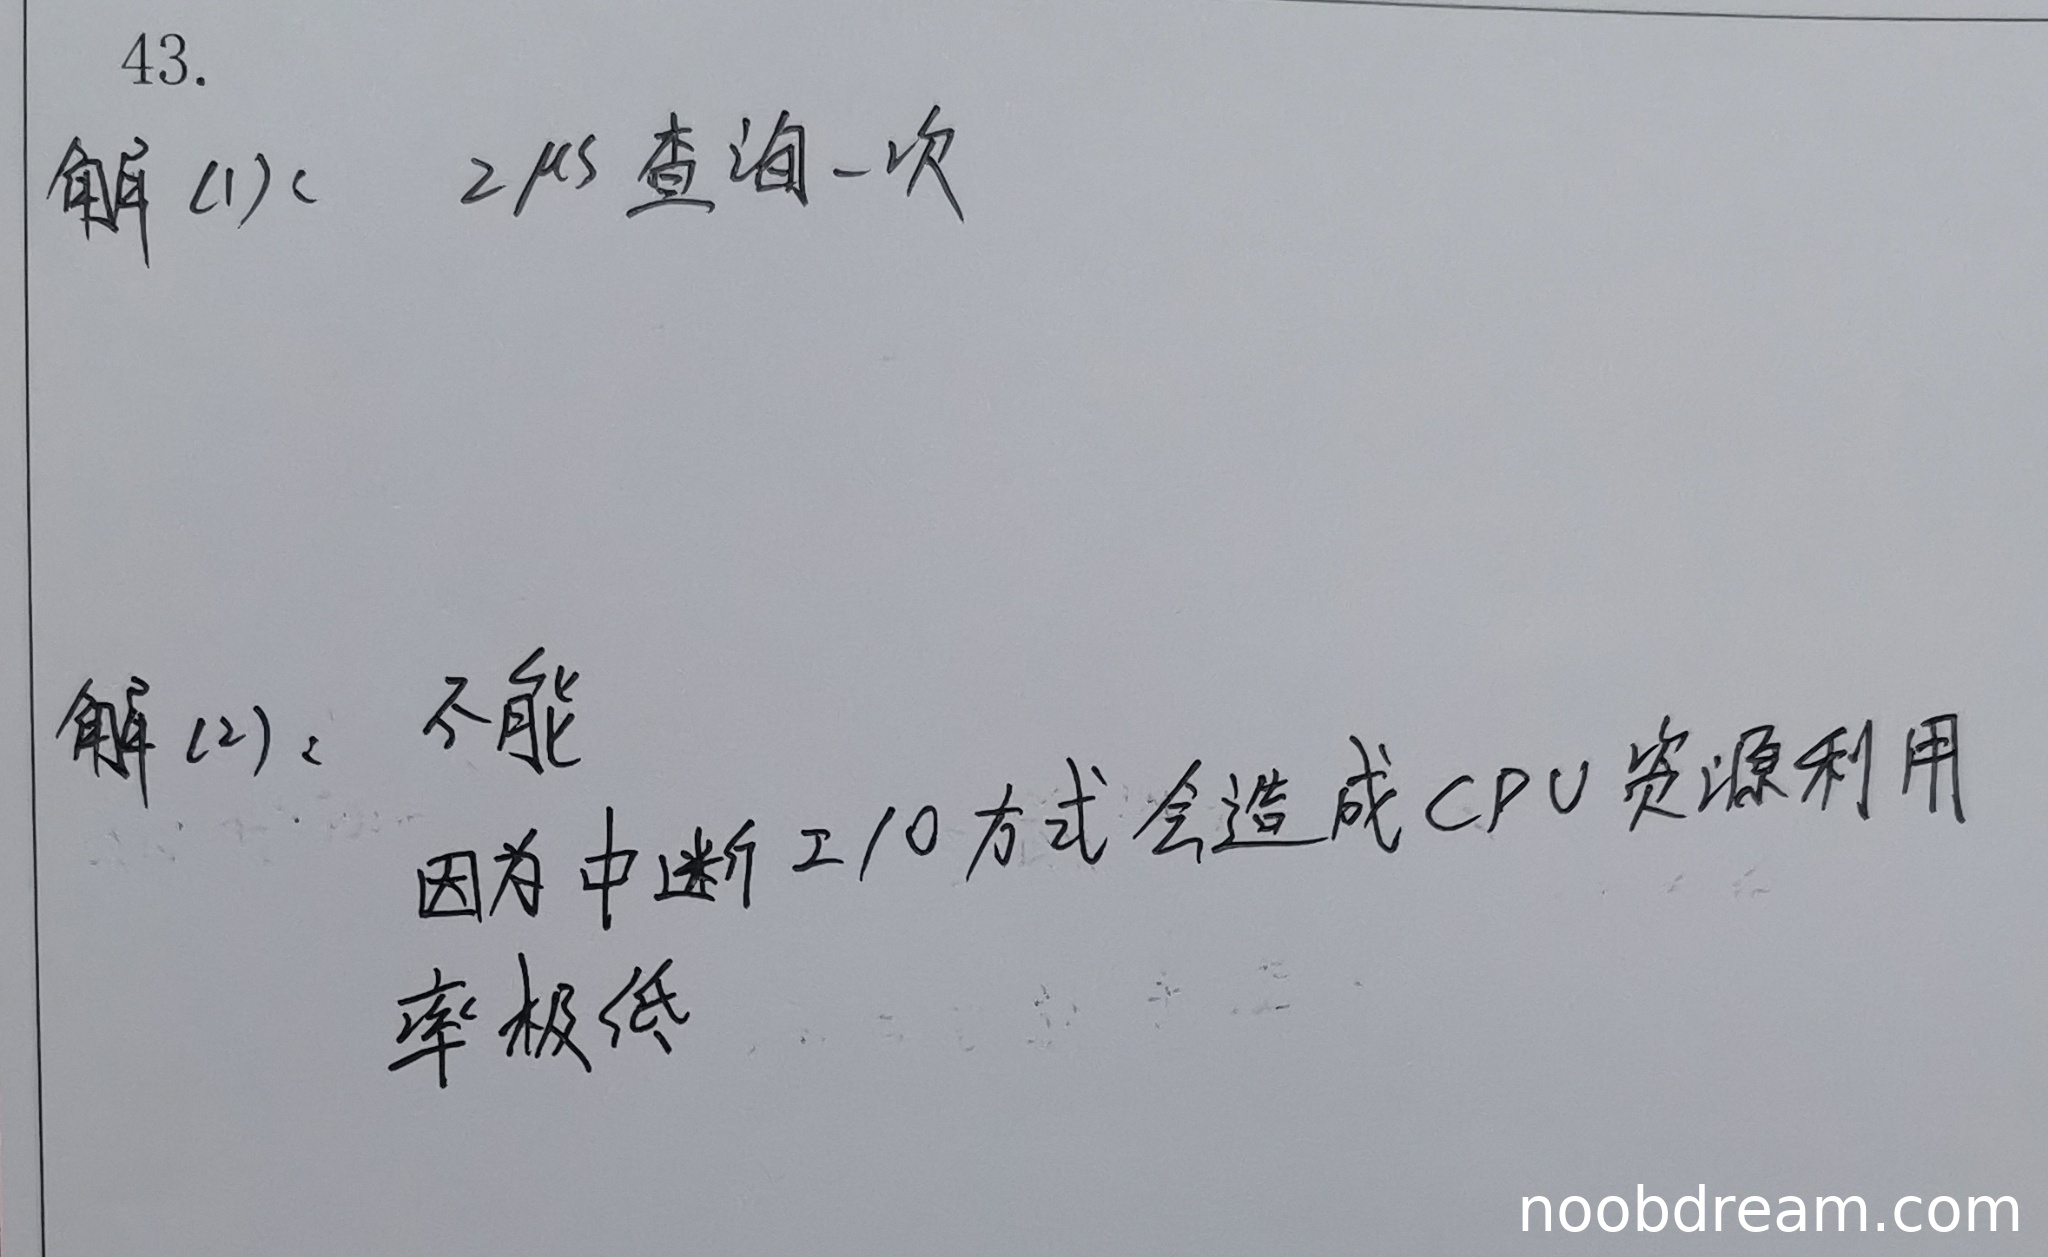 43.
解(1): 2μs查询一次
解(2): 不能
因为中断I/O方式会造成CPU资源利用
率极低
noobdream.com